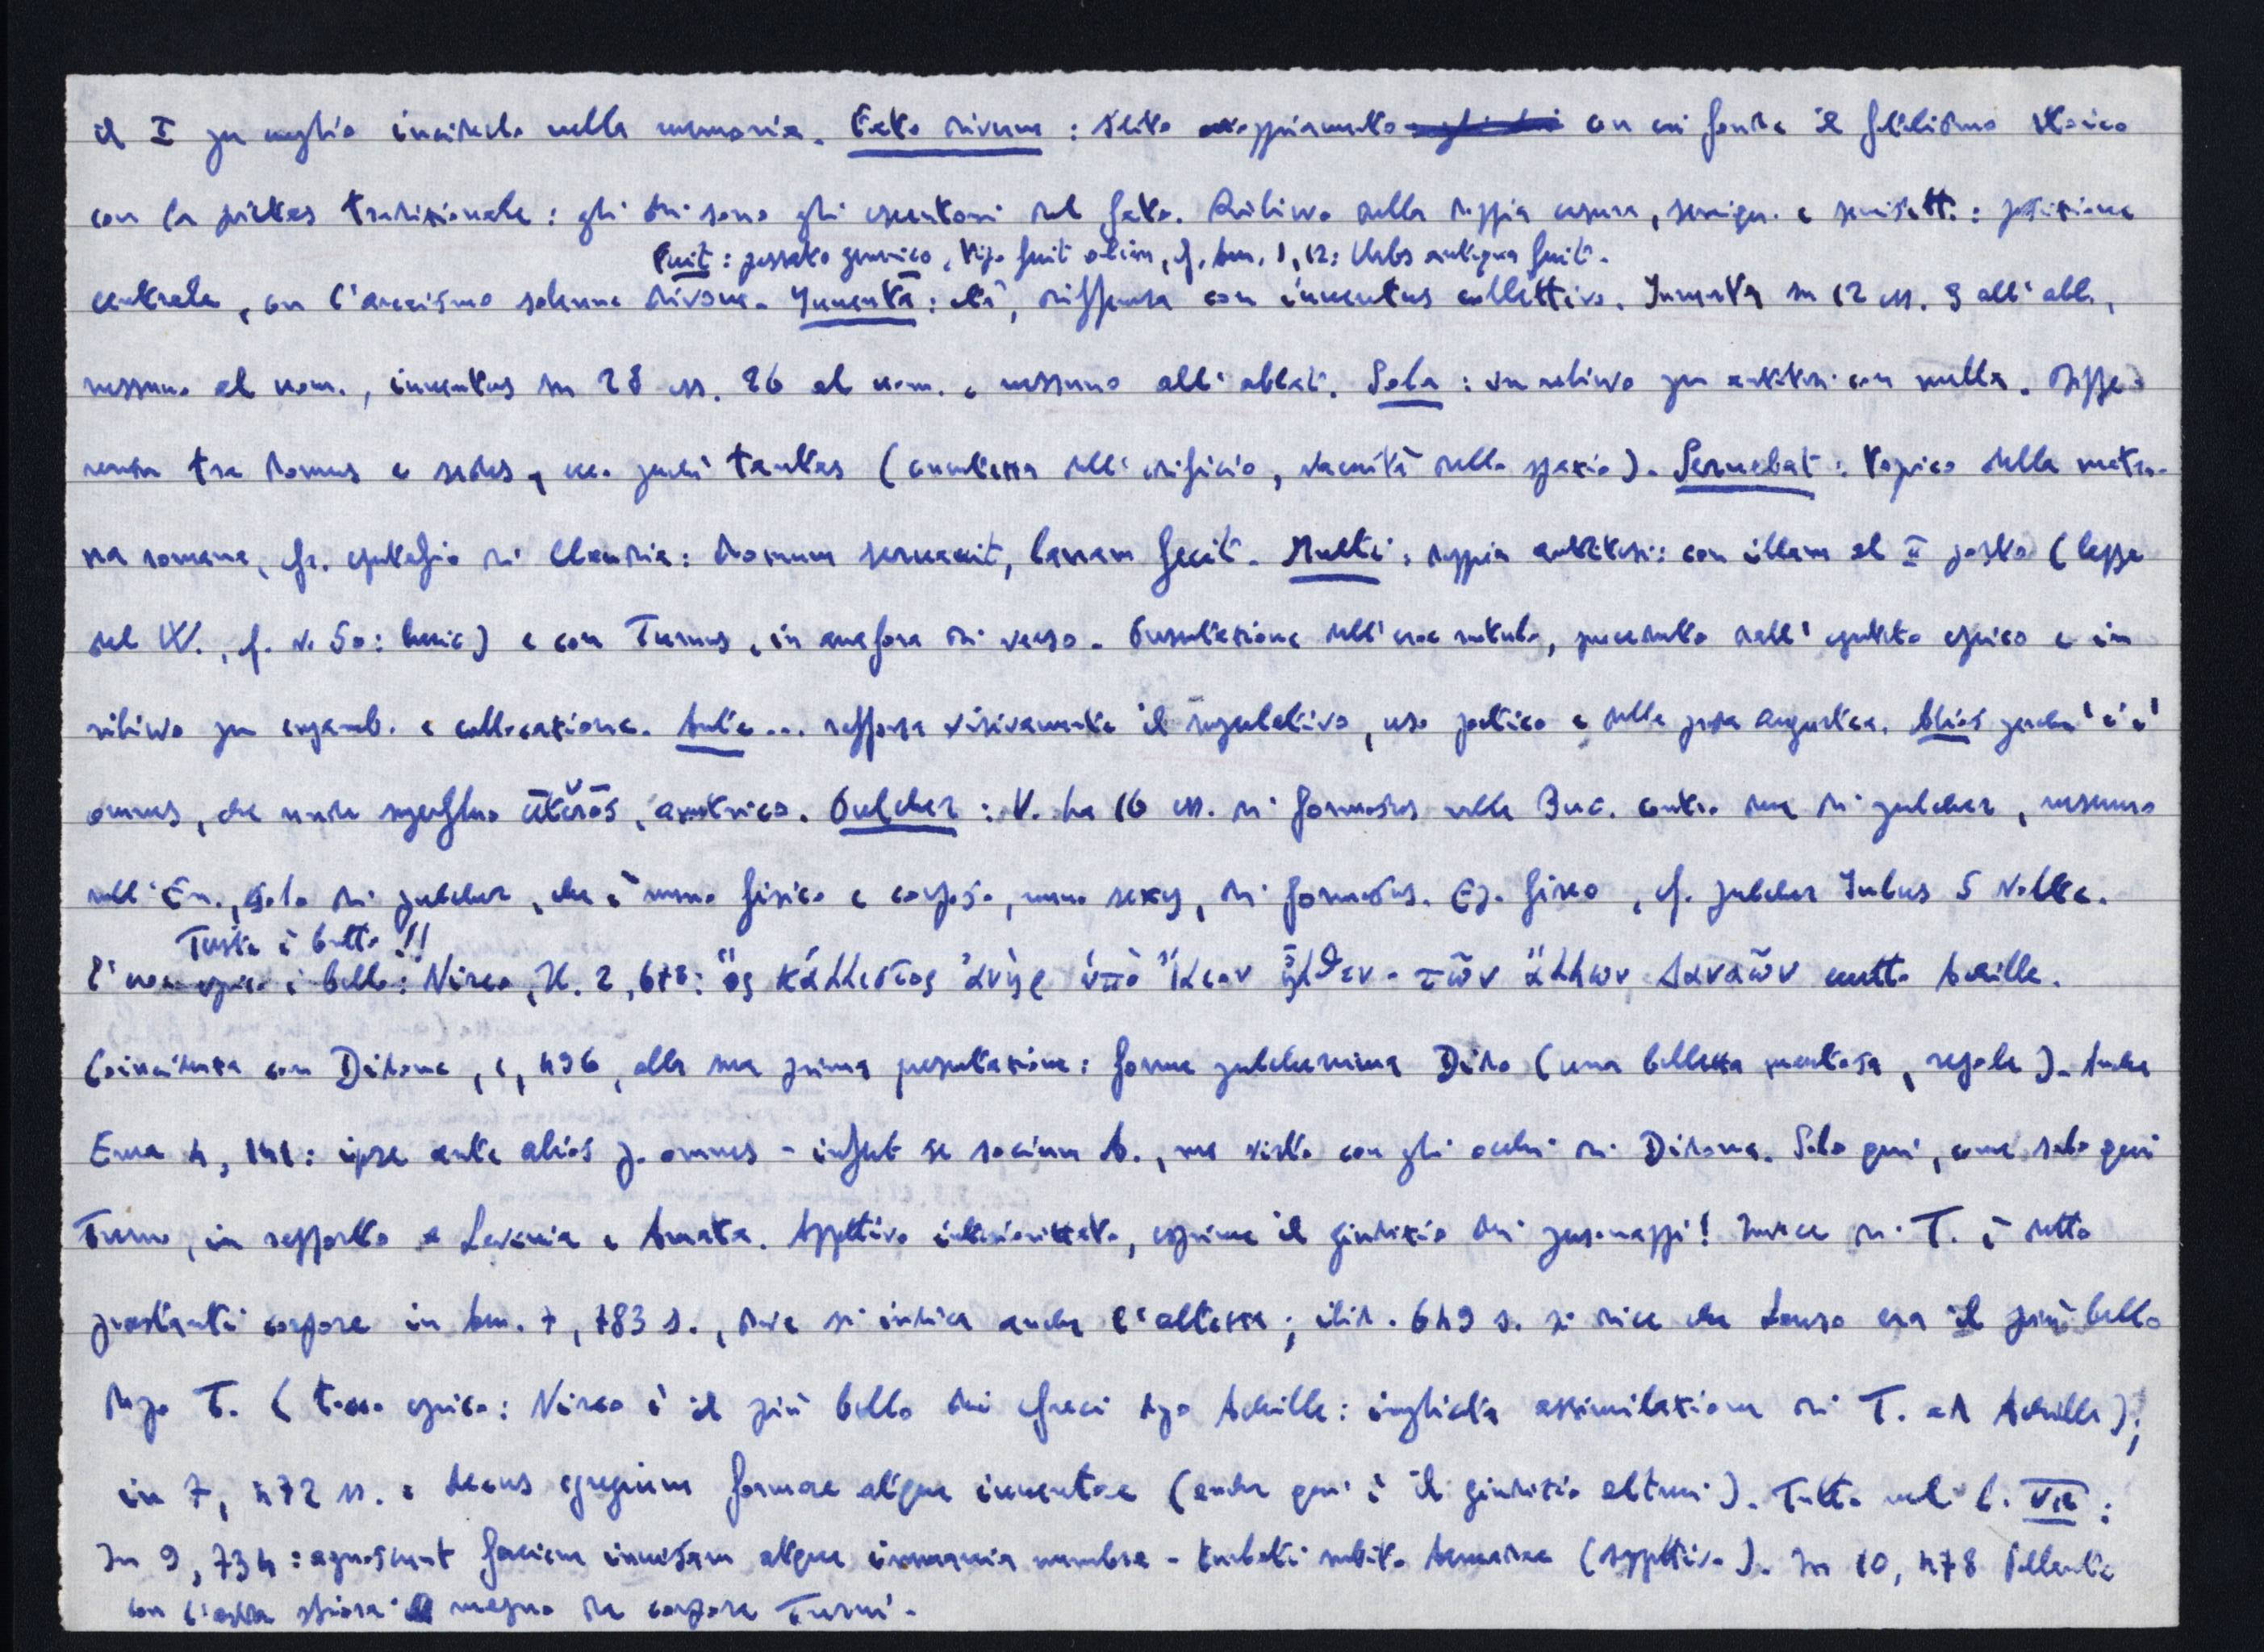 il I per meglio inciderlo nella memoria. Fato divum : stilo accoppiamento con cui fonde il fatalismo stoico
con la pietas tradizionale : gli dei sono gli esecutori del fato. Rilievo della doppia cesura, semiqu. e semisett. : posizione
Fuit : passato generico, tipo fuit olim, cf. Aen. 1, 12 : Urbs antiqua fuit.
centrale, con l'arcaismo solenne divom. Iuventa : età, differenza con iuventus collettivo. Iuventa su 12 ess. 9 all'abl.,
nessuno al nom., iuventus su 28 ess. 26 al nom. e nessuno all'ablat. Sola : in rilievo per antitesi con multi. Diffe-
renza tra domus e sedes, ecco perché tantas (grandezza dell'edificio, vacuità dello spazio). Servabat : topico della matro-
na romana, cfr. epitafio di Claudia : domum servavit, lanam fecit. Multi : doppia antitesi : con illam al II posto (legge
del W., cf. v. 50 : huic) e con Turnus, in anafora di verso. Presentazione dell'eroe rutulo, preceduto dall'epiteto epico e in
rilievo per enjamb. e collocazione. Ante ... rafforza visivamente il superlativo, uso poetico e della prosa augustea. Alios perché c'è
omnes, che rende superfluo cēterōs, ametrico. Pulcher : V. ha 16 ess. di formosus nelle Buc. contro due di pulcher, nessuno
nell'En., solo di pulcher, che è meno fisico e corposo, meno sexy, di formosus. Ep. fisso, cf. pulcher Iulus 5 volte.
Tersite è brutto !!
L'eroe epico è bello : Nireo, Il. 2, 673 : ὃς κάλλιστος ἀνὴρ ὑπὸ Ἴλιον ἦλθεν - τῶν ἄλλων Δαναῶν eccetto Achille.
Coincidenza con Didone, 1, 496, alla sua prima presentazione : forma pulcherrima Dido (una bellezza maestosa, regale). Anche
Enea 4, 141 : ipse ante alios p. omnes - infert se socium A., ma visto con gli occhi di Didone. Solo qui, come solo qui
Turno, in rapporto a Lavinia e Amata. Aggettivo intensionizzato, esprime il giudizio dei personaggi! Invece di T. è detto
praestanti corpore in Aen. 7, 783 s., dove si indica anche l'altezza ; ibid. 649 s. si dice che Lauso era il più bello
dopo T. (tocco epico : Nireo è il più bello dei Greci dopo Achille : implicita assimilazione di T. ad Achille);
in 7, 472 ss. è decus egregium formae atque iuventae (anche qui è il giudizio altrui). Tutto nel l. VII :
In 9, 734 : agnoscunt faciem invisam atque immania membra - turbati subito Aeneadae (aggettivo). In 10, 478 Pallante
con l'asta sfiora magno de corpore Turni.